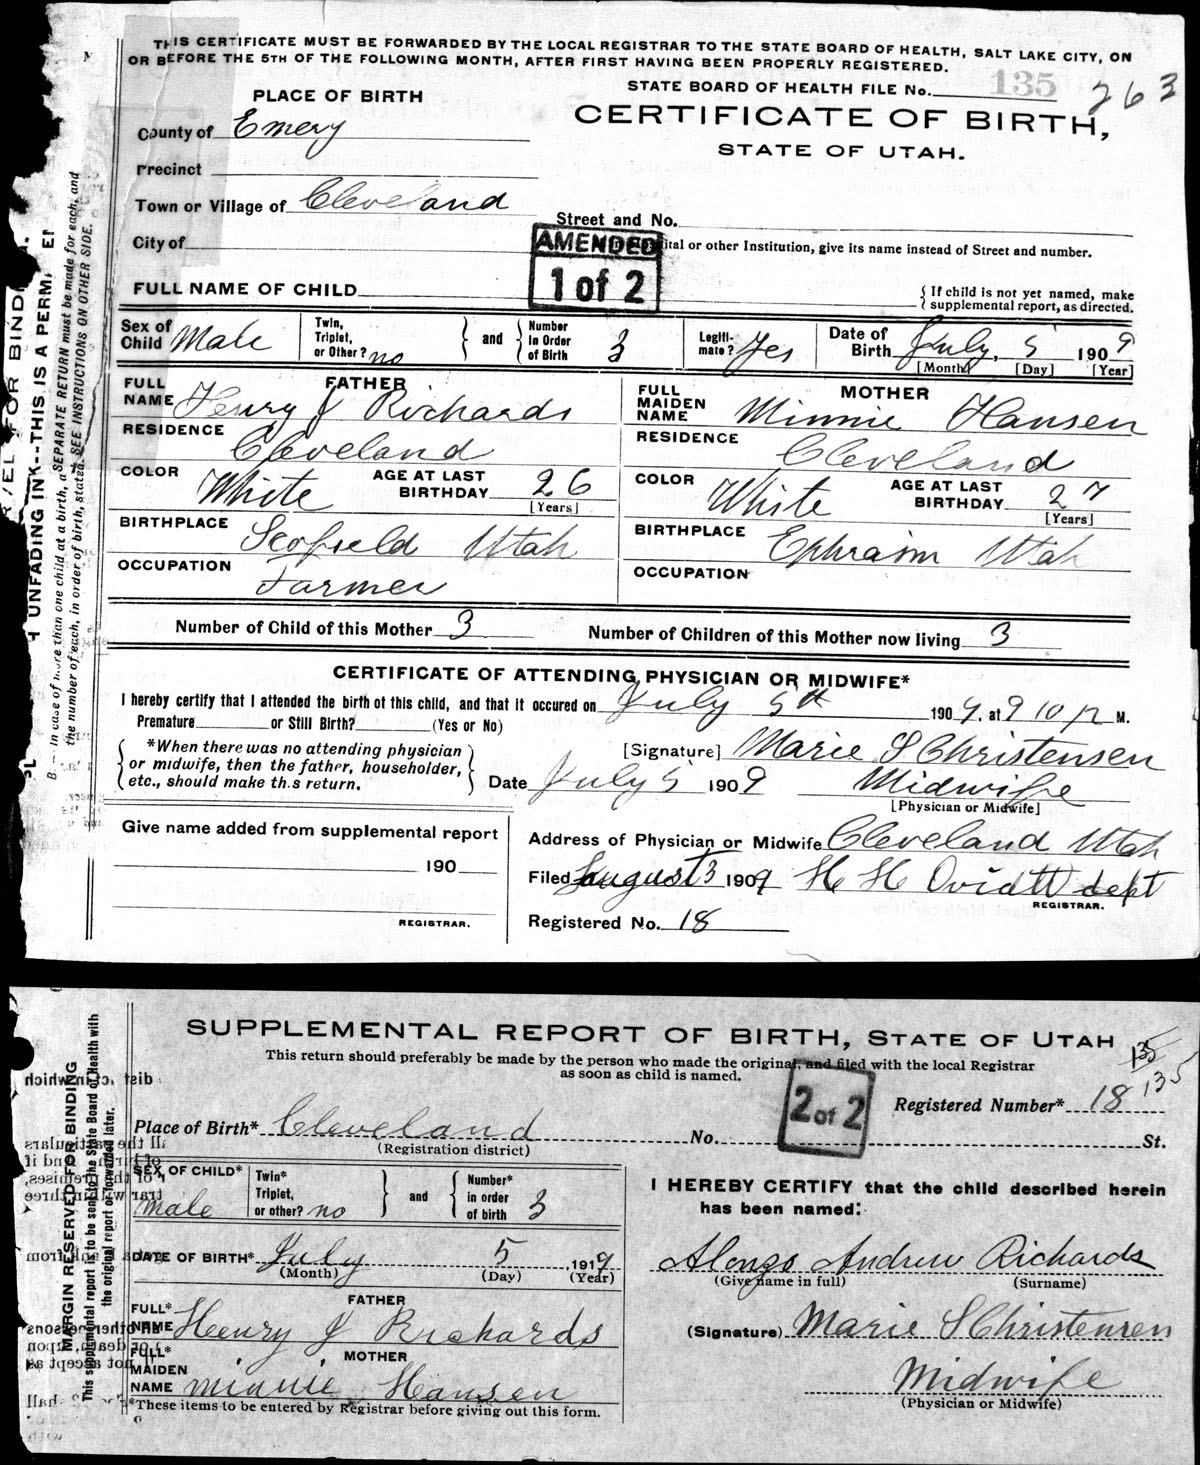 THIS CERTIFICATE MUST BE FORWARDED BY THE LOCAL REGISTRAR TO THE STATE BOARD OF HEALTH, SALT LAKE CITY, ON
OR BEFORE THE 5TH OF THE FOLLOWING MONTH, AFTER FIRST HAVING BEEN PROPERLY REGISTERED.
STATE BOARD OF HEALTH FILE No. 135 263
PLACE OF BIRTH
CERTIFICATE OF BIRTH,
STATE OF UTAH.
County of Emery
Precinct
Town or Village of Cleveland
Street and No.
City of
AMENDED
1 of 2
ital or other Institution, give its name instead of Street and number.
FULL NAME OF CHILD
{ If child is not yet named, make
supplemental report, as directed.
Sex of Child Male
Twin, Triplet, or Other? no
and
Number in Order of Birth 3
Legiti-mate? Yes
Date of Birth July, 5 1909
[Month] [Day] [Year]
FATHER
FULL NAME Henry J Richards
RESIDENCE
Cleveland
COLOR White
AGE AT LAST BIRTHDAY 26
[Years]
BIRTHPLACE Scofield Utah
OCCUPATION
Farmer
MOTHER
FULL MAIDEN NAME Minnie Hansen
RESIDENCE
Cleveland
COLOR White
AGE AT LAST BIRTHDAY 27
[Years]
BIRTHPLACE Ephraim Utah
OCCUPATION
Number of Child of this Mother 3
Number of Children of this Mother now living 3
CERTIFICATE OF ATTENDING PHYSICIAN OR MIDWIFE*
I hereby certify that I attended the birth of this child, and that it occured on July 5th 1909. at 9 10 p M.
Premature or Still Birth? (Yes or No)
*When there was no attending physician
or midwife, then the father, householder,
etc., should make this return.
[Signature] Marie S Christensen
Date July 5 1909 Midwife
[Physician or Midwife]
Give name added from supplemental report
190
REGISTRAR.
Address of Physician or Midwife Cleveland Utah
Filed August 3 1909 H H Oviatt dept
REGISTRAR.
Registered No. 18
UNFADING INK--THIS IS A PERM
In case of more than one child at a birth, a SEPARATE RETURN must be made for each, and
the number of each, in order of birth, stated. SEE INSTRUCTIONS ON OTHER SIDE.
SUPPLEMENTAL REPORT OF BIRTH, STATE OF UTAH
This return should preferably be made by the person who made the original, and filed with the local Registrar
as soon as child is named.
135
135
2 of 2
Registered Number* 18
Place of Birth* Cleveland No. St.
(Registration district)
SEX OF CHILD*
male
Twin* Triplet, or other? no
and
Number* in order of birth 3
DATE OF BIRTH* July 5 1919
(Month) (Day) (Year)
FATHER
FULL* NAME Henry J Richards
MOTHER
FULL* MAIDEN NAME minnie Hansen
*These items to be entered by Registrar before giving out this form.
I HEREBY CERTIFY that the child described herein
has been named:
Alonzo Andrew Richards
(Give name in full) (Surname)
(Signature) Marie S Christensen
Midwife
(Physician or Midwife)
MARGIN RESERVED FOR BINDING
This supplemental report is to be sent to the State Board of Health with
the original report or forwarded later.